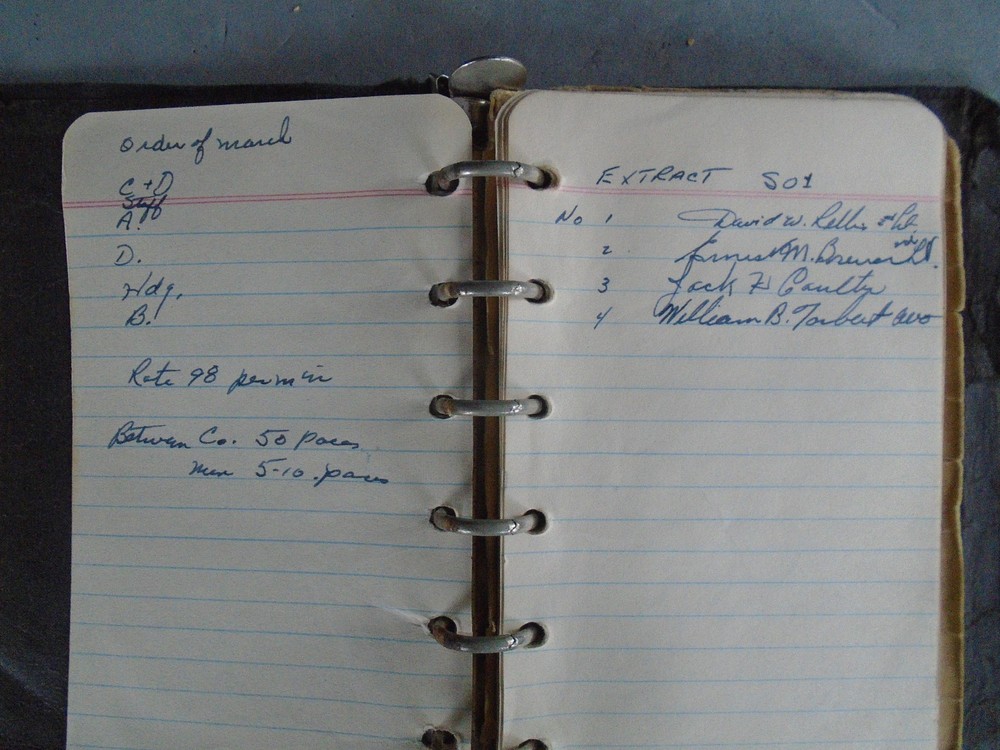 Order of march
C + D
Staff
A.
D.
Hdq.
B.
Rate 98 per min
Between Co. 50 paces
men 5-10 paces
EXTRACT SO1
No 1 David W.
2 Ernest M.
3 Jack
4 William B. Torbert